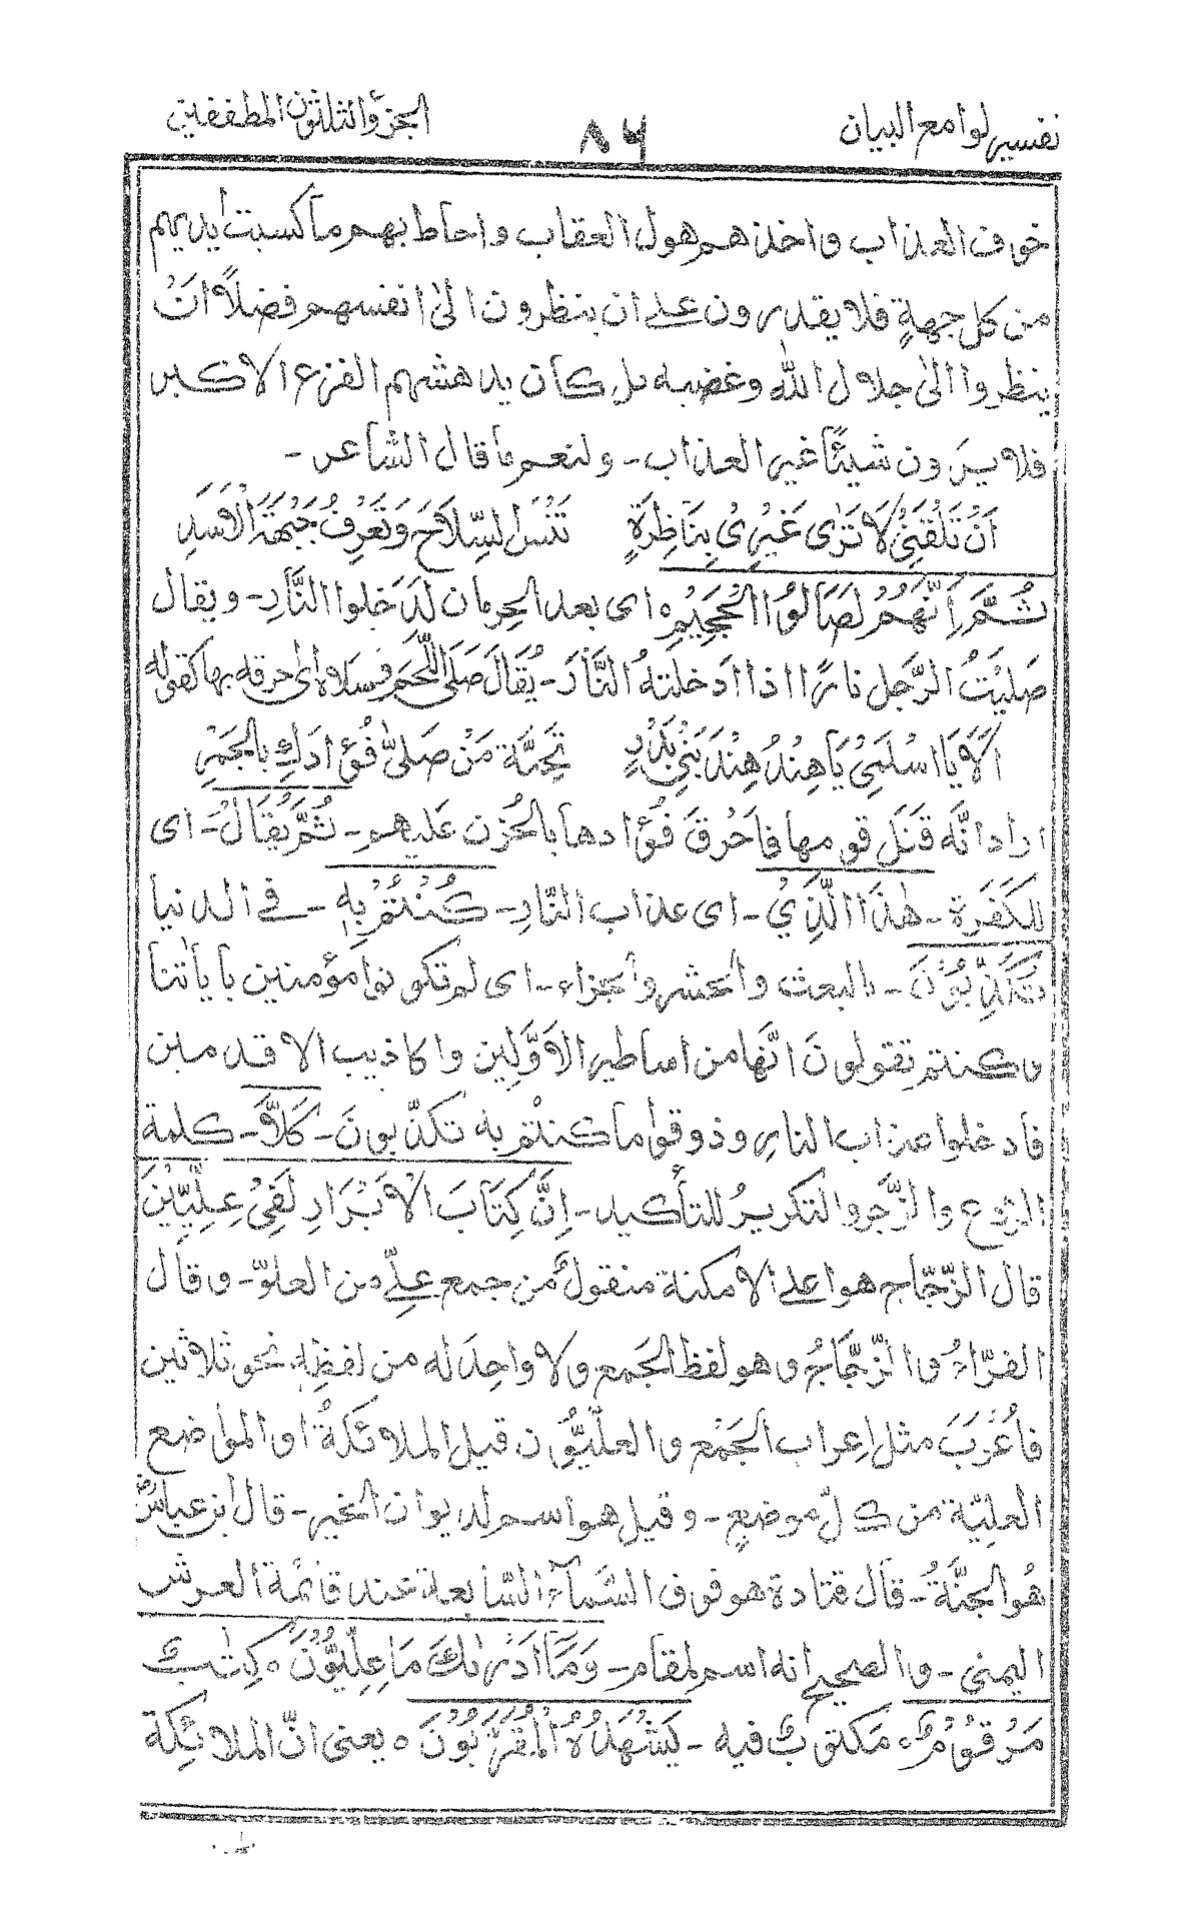 تفسير لوامع البيان
٨٦
الجزء الثلثون المطففين
خوف العذاب واخذهم هول العقاب واحاط بهم ما كسبت ايديهم
من كل جهةٍ فلا يقدرون على ان ينظرون الىٰ انفسهم فضلاً انْ
ينظروا الىٰ جلال الله وغضبه بل كان يدهشهم الفزع الاكبر
فلا يرَون شيئًا غير العذاب - ولنعم ما قال الشاعر -
اَنْ تَلْقَنِىْ لَا تَرٰى غَيْرِىْ بِنَاظِرَةٍ تَنْسَ السِّلَاحَ وَتَعْرِفُ جَبْهَةَ الْاَسَدِ
ثُمَّ اِنَّهُمْ لَصَالُوا الْجَحِيْمِ ه اى بعد الحِرمان لدَخلوا النَّار - ويقال
صَلَيْتُ الرَّجل نارًا اذا ادَخلتهُ النَّارَ - يُقَالَ صَلَى اللَّحَم فى صلاه اى حرقه بها كقوله
اَلَا يَا اسْلَمِىْ يَا هِنْدُ هِنْدَ بَنِىْ بَدْرٍ تَحِيَّة مَنْ صَلىّٰ فُؤادَكِ بالجَمْرِ
اراد انَّه قَتَلَ قومها فاَحْرقَ فُؤادها بالحُزن عَليهم - ثُمَّ يُقَالُ - اى
للكَفَرة - هٰذَا الَّذِيْ - اى عذاب النَّار - كُنْتُمْ بِهٖ - فى الدنيا
تُكَذِّبُوْنَ - بالبعث والحشر والجزاء - اى لم تكونوا مؤمنين باٰياتنا
وكنتم تقولونَ انَّها من اساطير الاَوَّلين واكاذيب الاقدمين
فادخلوا عذاب النار وذوقوا ما كنتم به تكذّبونَ - كَلَّا - كلمة
الردع والزَّجر والتكريرُ للتأكيد - اِنَّ كِتَابَ الْاَبْرَارِ لَفِىْ عِلِّيِّيْنَ
قال الزّجّاج هو اعلى الامكنة منقولٌ من جمع عِلِّى من العلوّ - وقال
الفرّاءُ والزّجّاجُ وهو لفظ الجَمع ولا واحِدَ له من لفظِهٖ نحو ثلاثين
فاُعْرَبَ مثل اِعراب الجَمْع والعلّيُّون قيل الملائكةُ او المواضع
العلِيّة من كلّ موضعٍ - وقيل هو اسم لديوان الخير - قال ابن عباسٌ
هُو الجنَّةُ - قال قتادة هو فوق السَّماء السَّابعة عند قائمة العرش
اليمنى - والصحيح انه اسم لمقام - وَمَا اَدْرٰىكَ مَا عِلِّيُّوْنَ ه كِتٰبٌ
مَرْقُوْمٌ ه مَكتوبٌ فيه - يَشْهَدُهُ الْمُقَرَّبُوْنَ ه يعنى انّ الملائكة